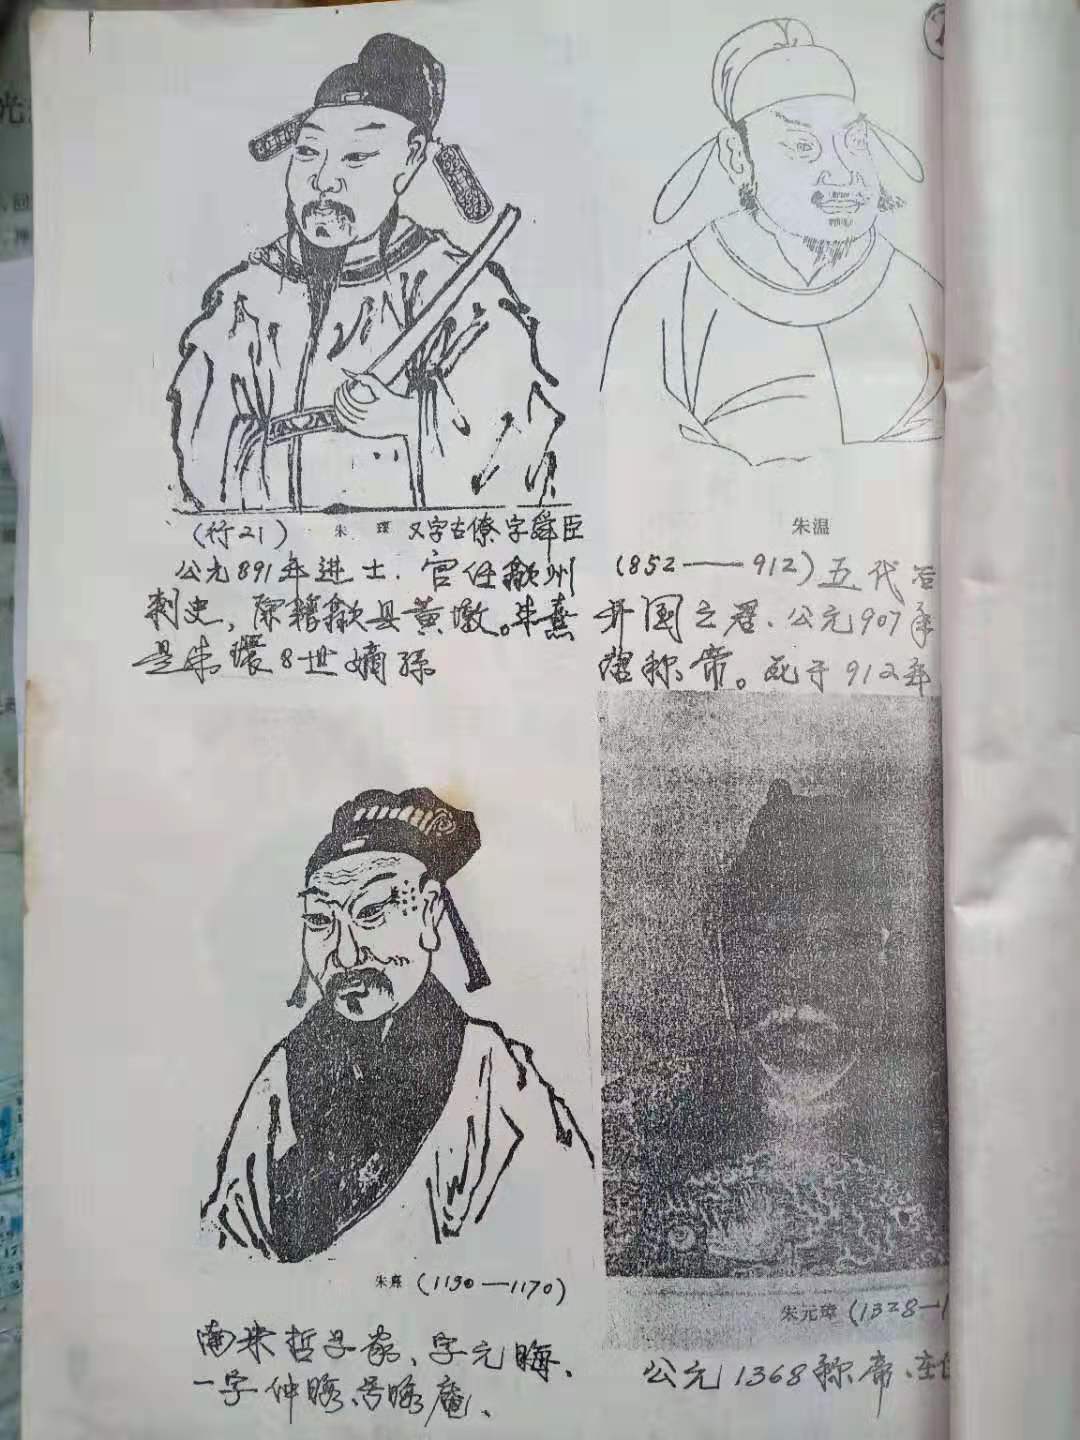 (行21) 朱 環 又字古僚字舜臣
公元891年进士. 官任歙州
刺史, 原籍歙县黄墩。朱熹
是朱環8世嫡孫
朱温
(852——912) 五代
开国之君、公元907
唐称帝。死于912年
朱熹 (1130—1170)
南宋哲学家、字元晦、
一字仲晦、号晦庵、
朱元璋 (1328—1
公元1368称帝、在